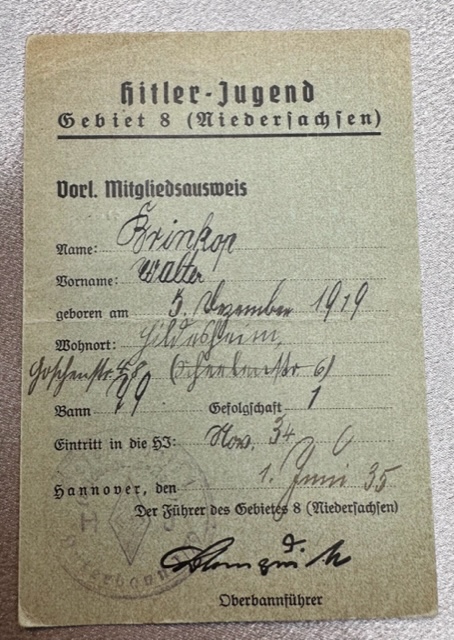 Hitler-Jugend
Gebiet 8 (Niedersachsen)
Vorl. Mitgliedsausweis
Name: Brinkop
Vorname: Walter
geboren am 5. Dezember 1919
Wohnort: Hildesheim,
Goschenstr. 48
Bann 79 Gefolgschaft 1
Eintritt in die HJ: Nov. 34
Hannover, den 1. Juni 35
Der Führer des Gebietes 8 (Niedersachsen)
H J
Oberbannführer